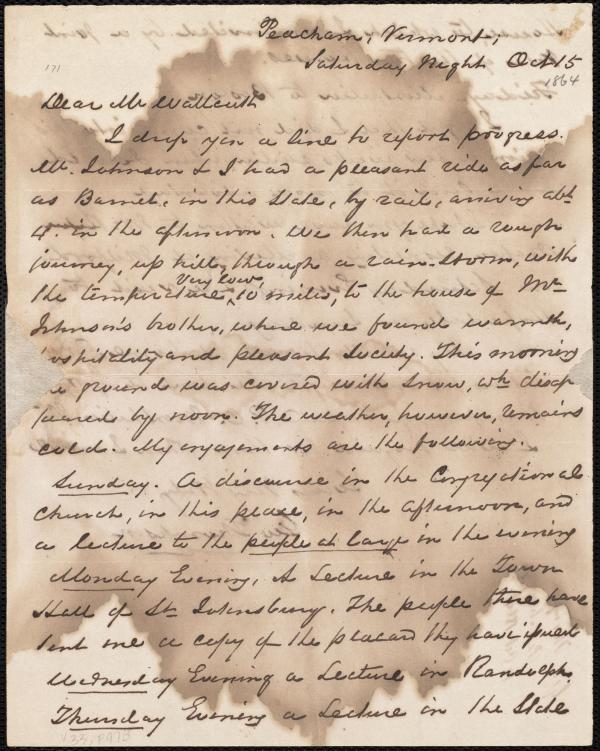 Peacham, Vermont,
Saturday Night Oct 15
171
1864
Dear Mr Wallcutt
I drop you a line to report progress.
Mr. Johnson & I had a pleasant ride as far
as Barnet, in this State, by rail, arriving abt
4. in the afternoon. We then had a rough
journey, up hill, through a rain-storm, with
very low,
the temperature, 10 miles, to the house of Mr
Johnson's brother, where we found warmth,
ospitality and pleasant Society. This morning
e ground was covered with snow, wh disap
peared by noon. The weather, however, remains
cold. My engagements are the following.
Sunday. A discourse in the Congregational
Church, in this place, in the afternoon, and
a lecture to the people at large in the evening
Monday Evening, A Lecture in the Town
Hall of St Johnsbury. The people there have
sent me a copy of the placard they have issued
Wednesday Evening a Lecture in Randolph.
Thursday Evening a Lecture in the State
v.33, p.97B